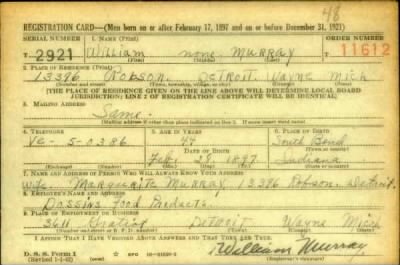 48
REGISTRATION CARD—(Men born on or after February 17, 1897 and on or before December 31, 1921)
SERIAL NUMBER 1. NAME (Print) ORDER NUMBER
T 2921 William none MURRAY 11612
(First) (Middle) (Last)
2. PLACE OF RESIDENCE (Print)
13396 Robson Detroit Wayne Mich
(Number and street) (Town, township, village, or city) (County) (State)
[THE PLACE OF RESIDENCE GIVEN ON THE LINE ABOVE WILL DETERMINE LOCAL BOARD
JURISDICTION; LINE 2 OF REGISTRATION CERTIFICATE WILL BE IDENTICAL]
3. MAILING ADDRESS
Same
[Mailing address if other than place indicated on line 2. If same insert word same]
4. TELEPHONE 5. AGE IN YEARS 6. PLACE OF BIRTH
VE-5-0386 44 South Bend
DATE OF BIRTH (Town or county)
Feb. 28 1897 Indiana
(Mo.) (Day) (Yr.) (State or country)
7. NAME AND ADDRESS OF PERSON WHO WILL ALWAYS KNOW YOUR ADDRESS
wife Marguerite Murray 13396 Robson. Detroit
8. EMPLOYER'S NAME AND ADDRESS
Dossins Food Products
9. PLACE OF EMPLOYMENT OR BUSINESS
3611 Gratiot Detroit Wayne Mich
(Number and street or R. F. D. number) (Town) (County) (State)
I AFFIRM THAT I HAVE VERIFIED ABOVE ANSWERS AND THAT THEY ARE TRUE.
D. S. S. Form 1
(Revised 1-1-42)
GPO
William Murray